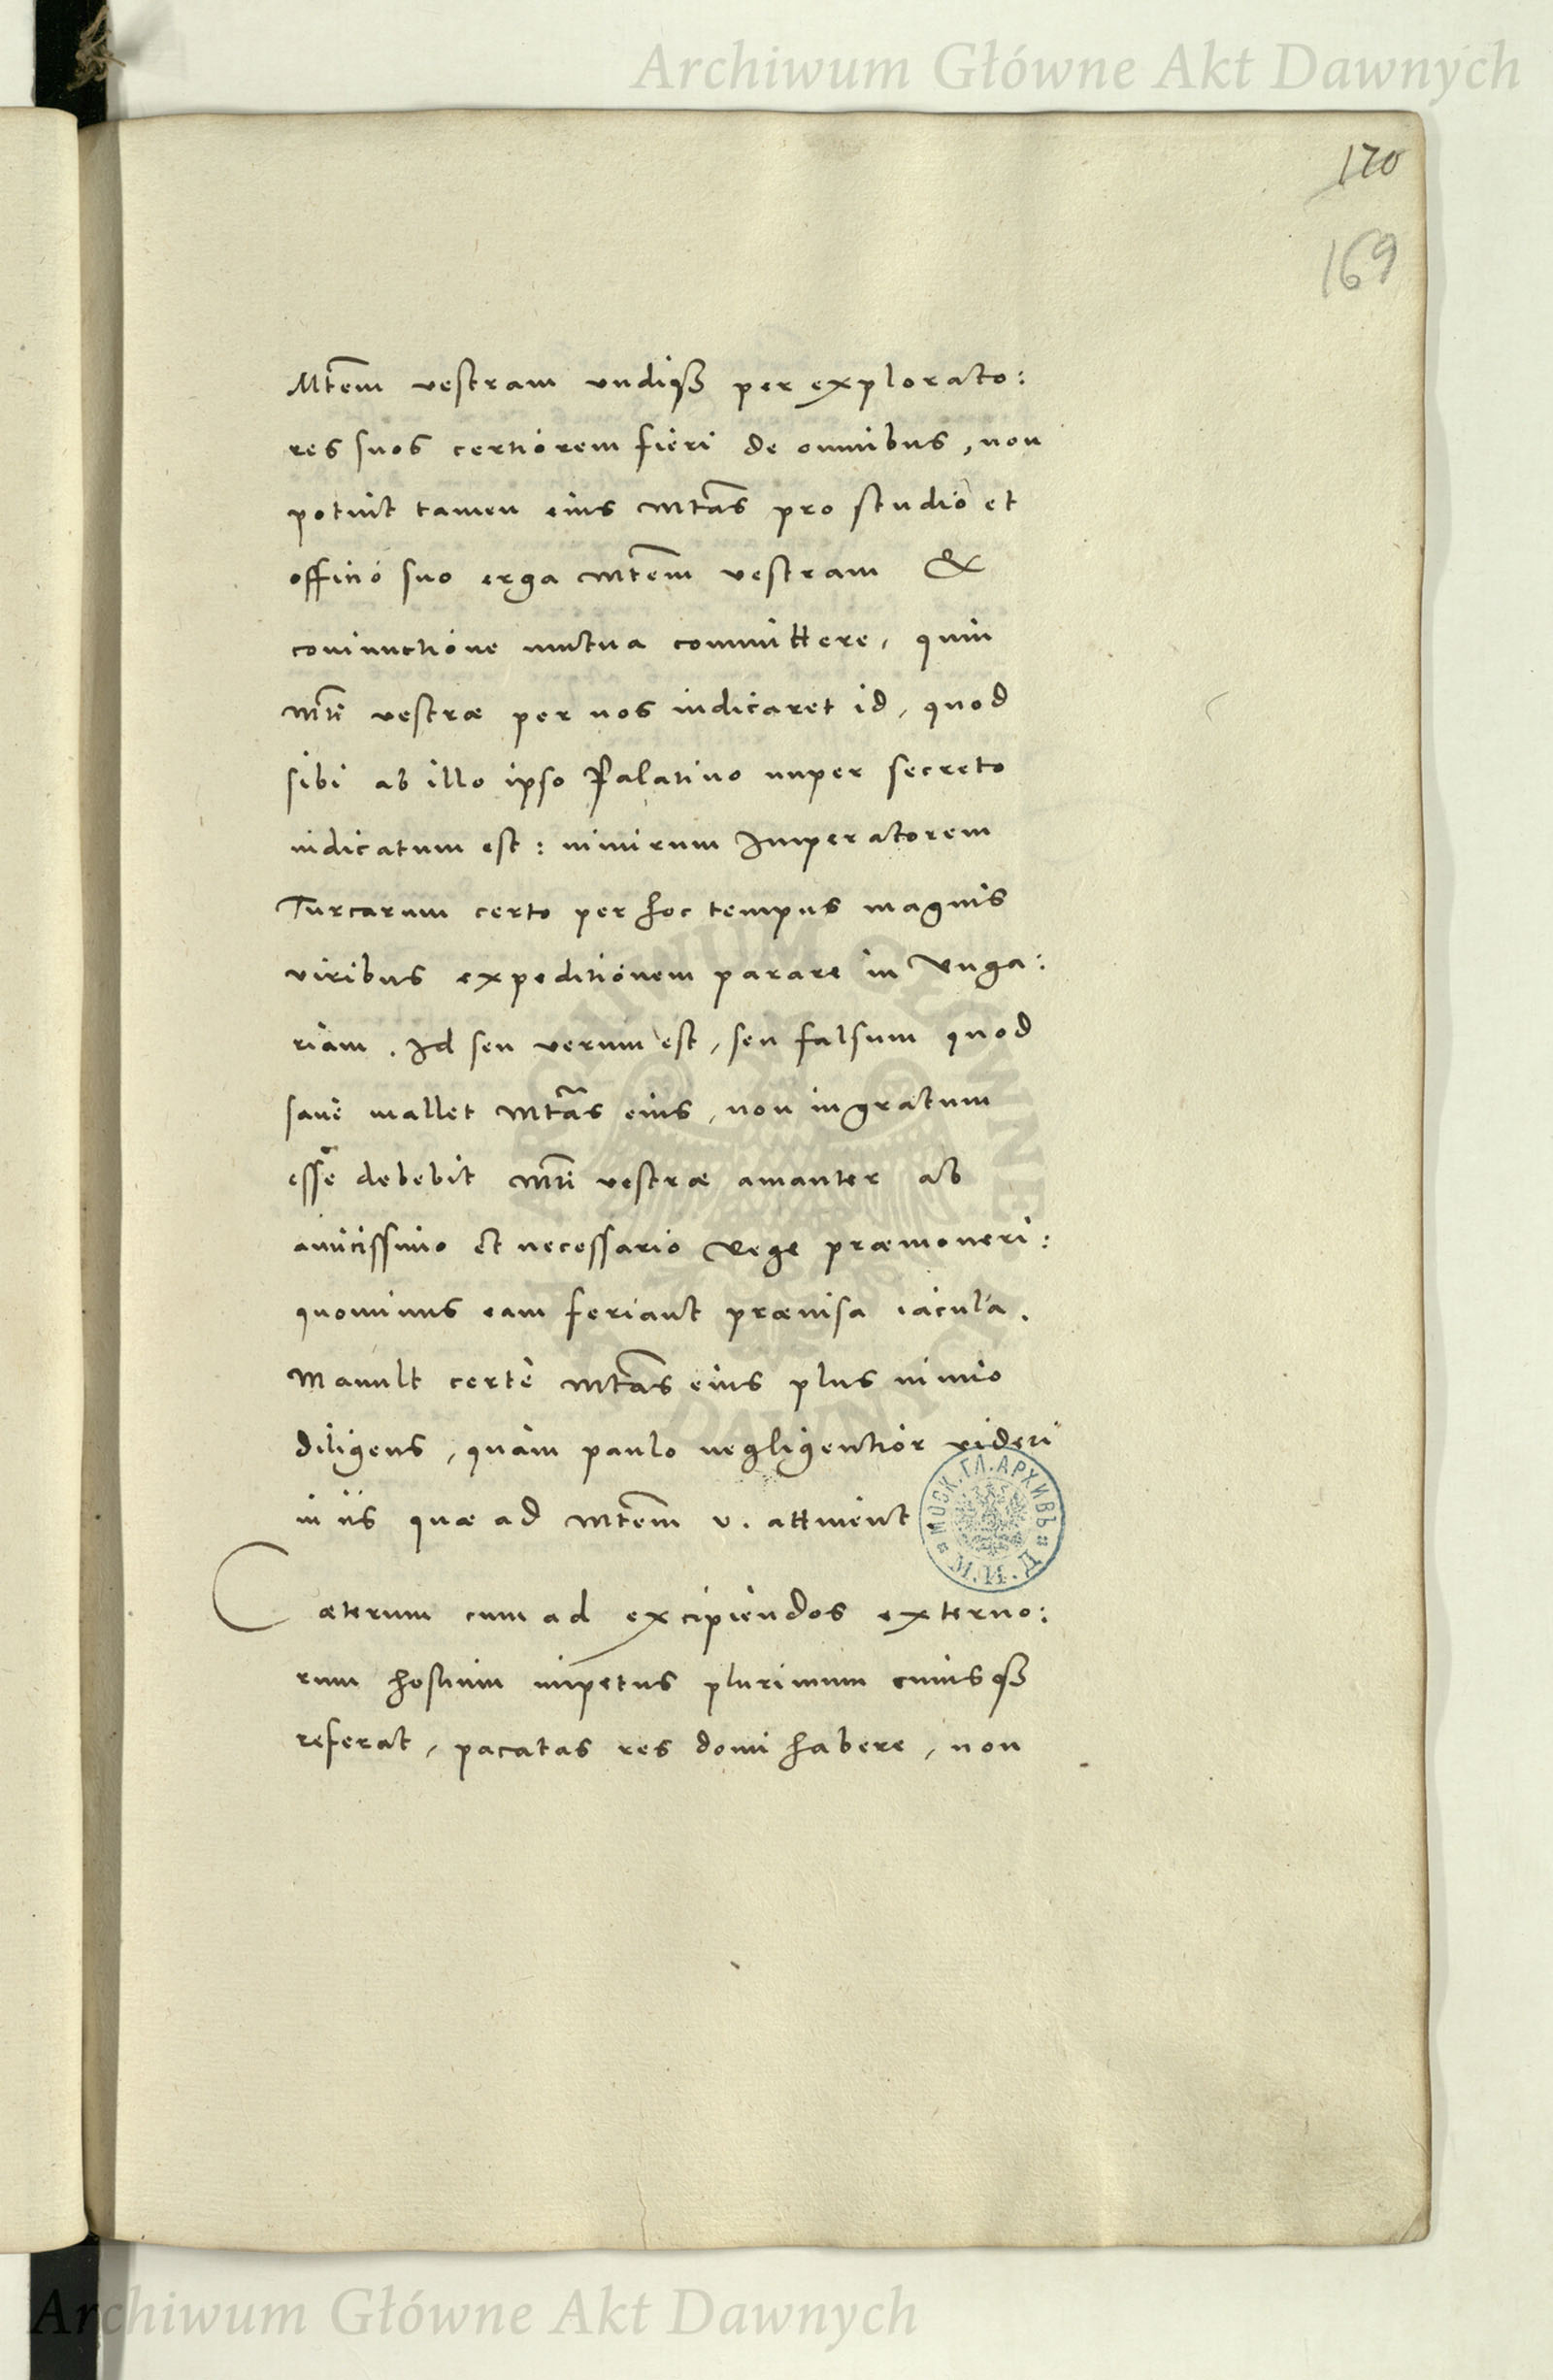 Archiwum Główne Akt Dawnych
170
169
Mtem vestram undiq3 per explorato:
res suos certiorem fieri de omnibus, non
potuit tamen eius Mtas pro studio et
officio suo erga Mtem vestram &
coniunctione mutua committere, quin
Mti vestræ per nos indicaret id, quod
sibi ab illo ipso Palatino nuper secreto
indicatum est: nimirum Imperatorem
Turcarum certo per hoc tempus magnis
viribus expeditionem parare in Unga:
riam. Id seu verum est, seu falsum quod
sane mallet Mtas eius, non ingratum
esse debebit Mti vestræ amanter ab
amicissimo et necessario Rege præmoneri:
quominus eam feriant prævisa iacula.
Mavult certè Mtas eius plus nimio
diligens, quàm paulo negligentior videri
in iis quæ ad Mtem v. attinent
Cæterum cum ad excipiendos externo:
rum hostium impetus plurimum cuiusq3
referat, pacatas res domi habere, non
МОСК. ГЛ. АРХИВЪ
М. И. Д.
ARCHIWUM GŁÓWNE AKT DAWNYCH
Archiwum Główne Akt Dawnych